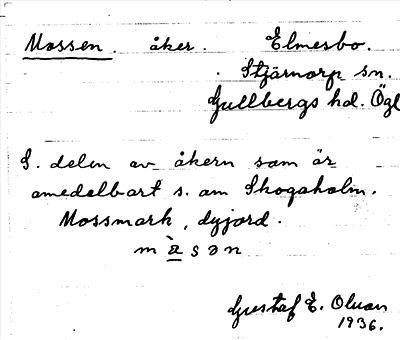 Mossen. åker. Elmesbo.
Stjärnorp sn.
Gullbergs hd. Ögl
S. delen av åkern som är
omedelbart s. om Skogaholm.
Mossmark, dyjord.
màsan
Gustaf E. Olson
1936.